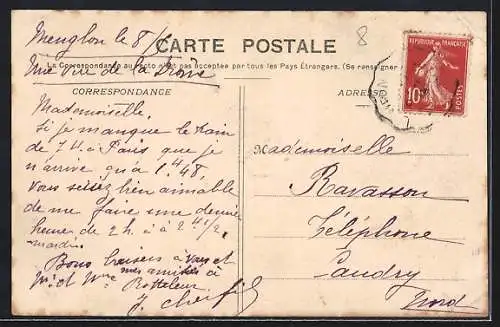 Menglon le 8/
8
CARTE POSTALE
La Correspondance au recto n'est pas acceptée par tous les Pays Étrangers. (Se renseigner
Une vue de la Drôme
CORRESPONDANCE
ADRESSE
REPUBLIQUE FRANÇAISE
10
POSTES
Mademoiselle
Si je manque le train
de 7 h. à Paris que je
n'arrive qu'à 1.48,
vous seriez bien aimable
de me faire une demie
heure de 2 h. à 2 h 1/2,
mardi.
Bons baisers à vous et
mes amitiés à
Mr et Mme
J.
Mademoiselle
Ravasson
Téléphone
Caudry
Nord